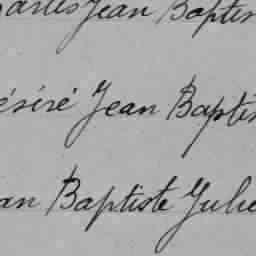 Jean Baptis
ésiré Jean Baptis
an Baptiste Julie